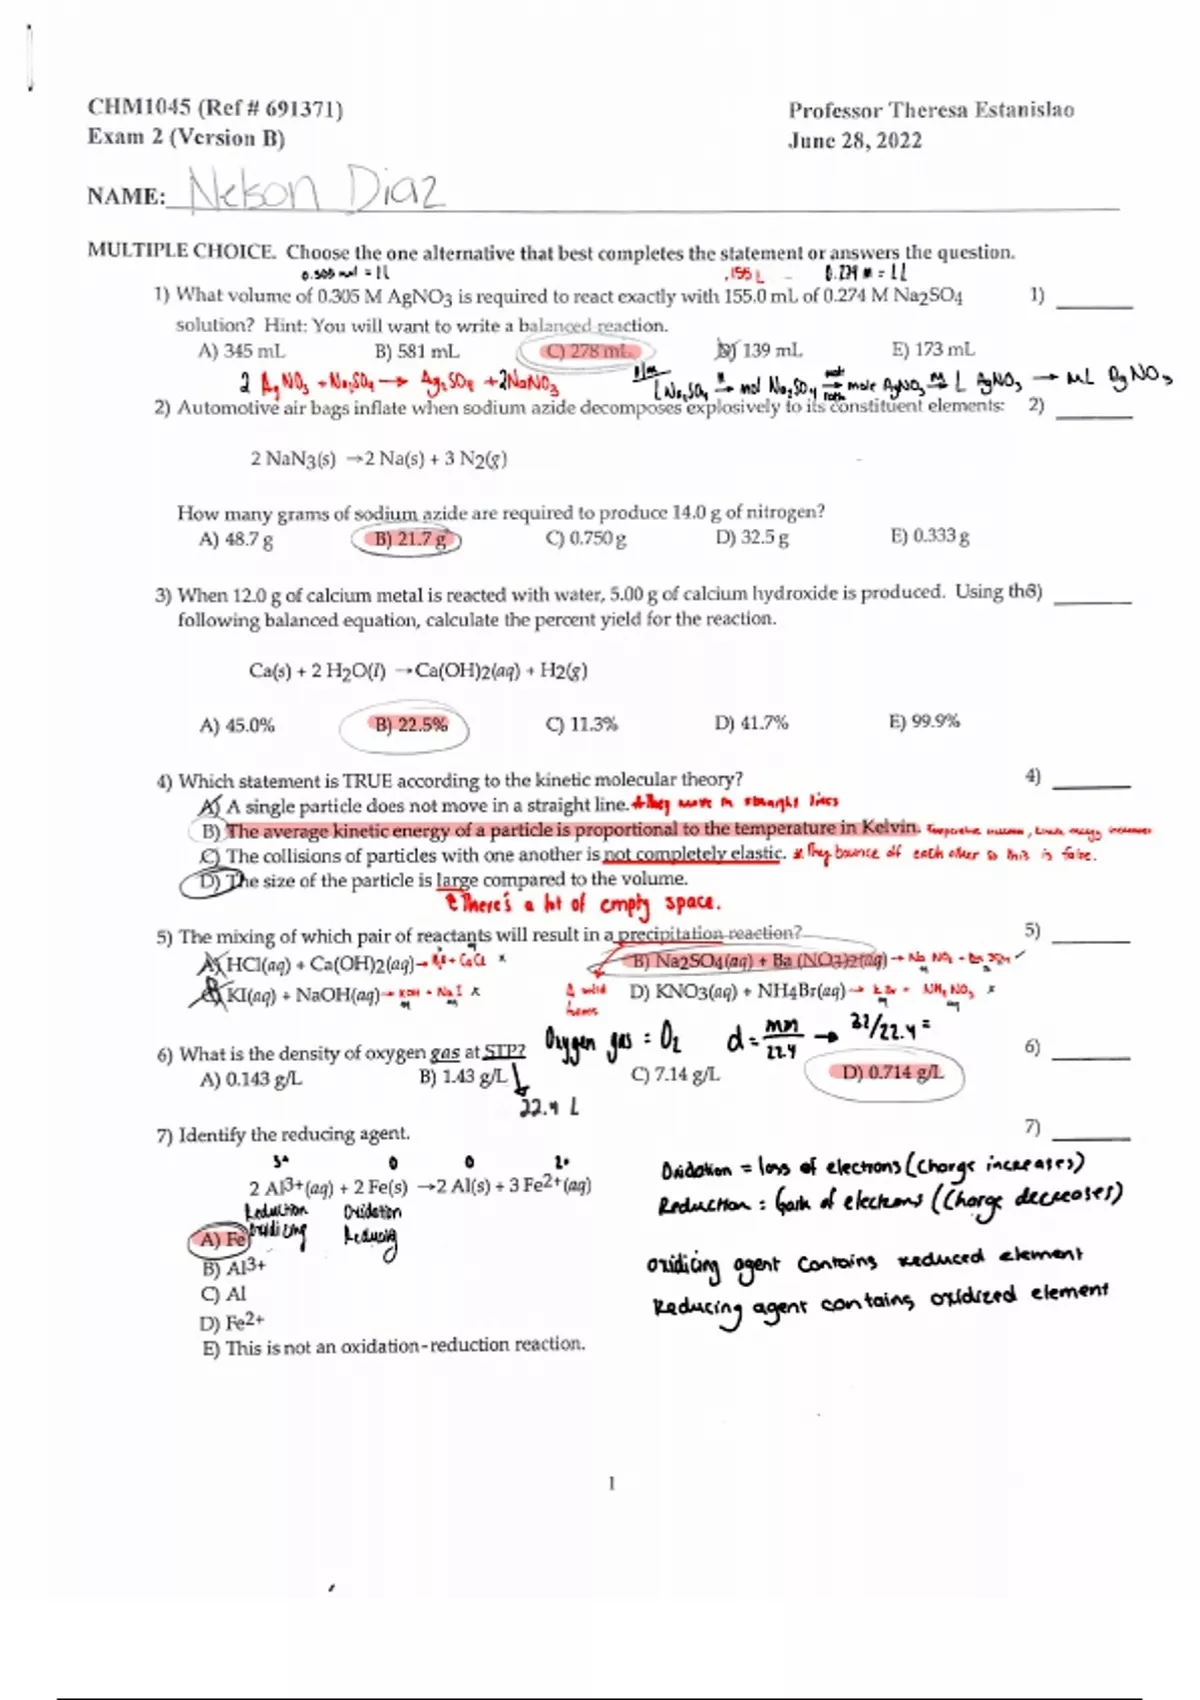 CHM1045 (Ref # 691371)
Professor Theresa Estanislao
Exam 2 (Version B)
June 28, 2022
NAME: Nelson Diaz
MULTIPLE CHOICE. Choose the one alternative that best completes the statement or answers the question.
0.305 mol = 1L .155 L 0.274 M = 1L
1) What volume of 0.305 M AgNO3 is required to react exactly with 155.0 mL of 0.274 M Na2SO4 1)
solution? Hint: You will want to write a balanced reaction.
A) 345 mL B) 581 mL C) 278 mL D) 139 mL E) 173 mL
2 AgNO3 + Na2SO4 → Ag2SO4 + 2NaNO3 L Na2SO4 → mol Na2SO4 → mole AgNO3 → L AgNO3 → mL AgNO3
2) Automotive air bags inflate when sodium azide decomposes explosively to its constituent elements: 2)
2 NaN3(s) →2 Na(s) + 3 N2(g)
How many grams of sodium azide are required to produce 14.0 g of nitrogen?
A) 48.7 g B) 21.7 g C) 0.750 g D) 32.5 g E) 0.333 g
3) When 12.0 g of calcium metal is reacted with water, 5.00 g of calcium hydroxide is produced. Using the 3)
following balanced equation, calculate the percent yield for the reaction.
Ca(s) + 2 H2O(l) →Ca(OH)2(aq) + H2(g)
A) 45.0% B) 22.5% C) 11.3% D) 41.7% E) 99.9%
4) Which statement is TRUE according to the kinetic molecular theory? 4)
A) A single particle does not move in a straight line. * They move in straight lines
B) The average kinetic energy of a particle is proportional to the temperature in Kelvin. Temperature increases, kinetic energy increases
C) The collisions of particles with one another is not completely elastic. * They bounce off each other so this is false.
D) The size of the particle is large compared to the volume.
There's a lot of empty space.
5) The mixing of which pair of reactants will result in a precipitation reaction? 5)
A) HCl(aq) + Ca(OH)2(aq) B) Na2SO4(aq) + Ba (NO3)2(aq)
KI(aq) + NaOH(aq) → KOH + NaI x A solid forms D) KNO3(aq) + NH4Br(aq) → KBr + NH4NO3 x
Oxygen gas = O2 d = mm/22.4 → 32/22.4 =
6) What is the density of oxygen gas at STP? 6)
A) 0.143 g/L B) 1.43 g/L C) 7.14 g/L D) 0.714 g/L
22.4 L
7) Identify the reducing agent. 7)
3+ 0 0 2+
2 Al3+(aq) + 2 Fe(s) →2 Al(s) + 3 Fe2+(aq)
Reduction Oxidation
Oxidizing Reducing
A) Fe
B) Al3+
C) Al
D) Fe2+
E) This is not an oxidation-reduction reaction.
Oxidation = loss of electrons (charge increases)
Reduction = Gain of electrons (charge decreases)
oxidicing agent contains reduced element
Reducing agent contains oxidized element
1